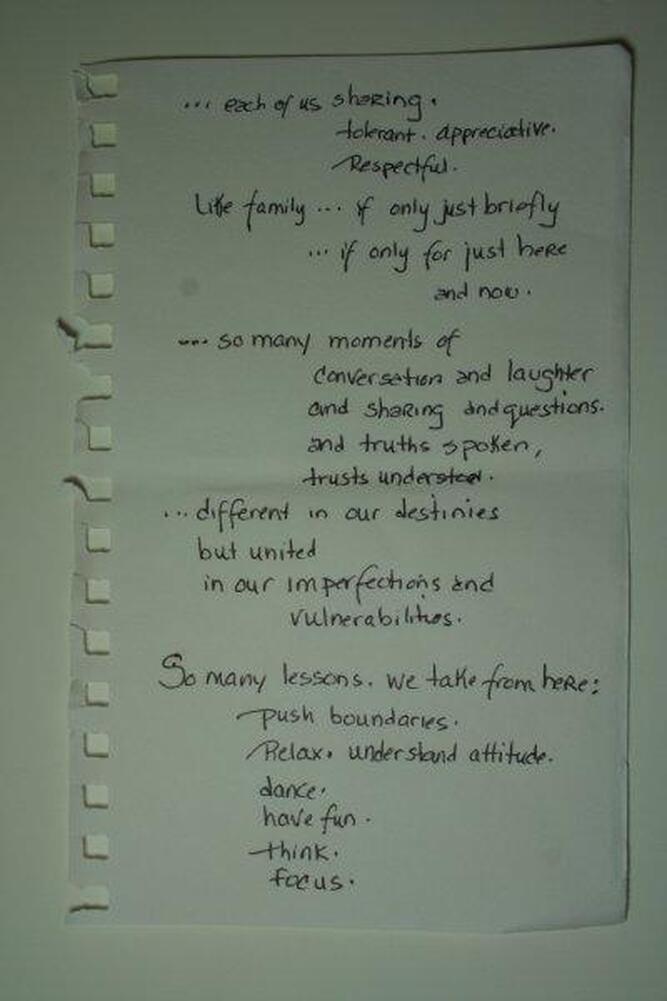 ... each of us sharing.
tolerant. appreciative.
Respectful.
Like family ... if only just briefly
... if only for just here
and now.
... so many moments of
conversation and laughter
and sharing and questions.
and truths spoken,
trusts understood.
... different in our destinies
but united
in our imperfections and
vulnerabilities.
So many lessons. we take from here:
push boundaries.
Relax. understand attitude.
dance.
have fun.
think.
focus.